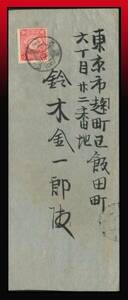 東京市麹町区飯田町
六丁目廿二番地
鈴木金一郎様